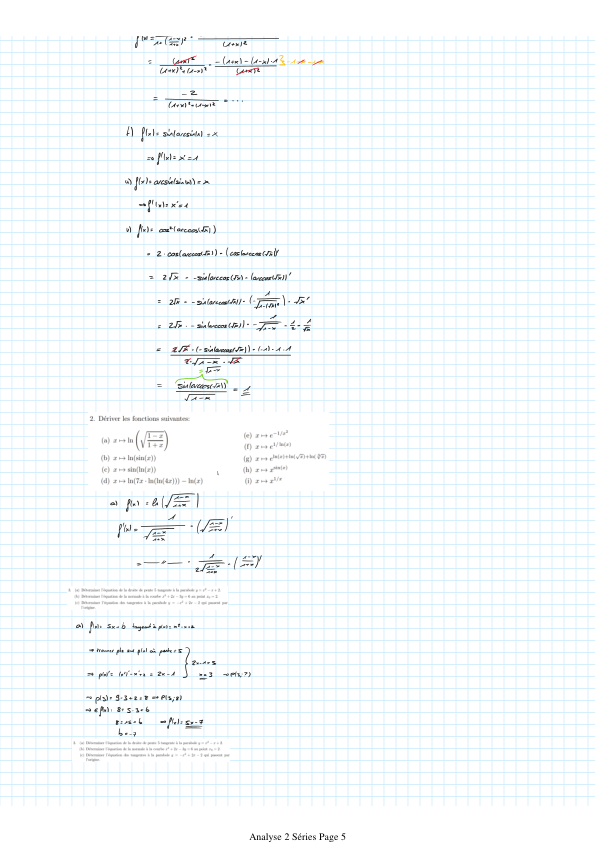 f'(x) = 1/(1+((1-x)/(1+x))²) · (1+x)²
= (1+x)²/((1+x)²+(1-x)²) · (-(1+x)-(1-x)·1)/(1+x)²
= -2/((1+x)²+(1-x)²) = ...
t) f(x) = sin(arcsin(x)) = x
⇒ f'(x) = x' = 1
u) f(x) = arcsin(sin(x)) = x
⇒ f'(x) = x' = 1
v) f(x) = cos²(arccos(√x))
= 2 · cos(arccos(√x)) · (cos(arccos(√x)))'
= 2√x · -sin(arccos(√x)) · (arccos(√x))'
= 2√x · -sin(arccos(√x)) · (-1/√(1-(√x)²)) · √x'
= 2√x · -sin(arccos(√x)) · -1/√(1-x) · 1/2 · 1/√x
= 2√x · (-sin(arccos(√x))) · (-1) · 1 · 1 / 2·√(1-x) · √x
= √(1-x)
= sin(arccos(√x))/√(1-x) = 1
2. Dériver les fonctions suivantes:
(a) x ↦ ln(√((1-x)/(1+x)))
(b) x ↦ ln(sin(x))
(c) x ↦ sin(ln(x))
(d) x ↦ ln(7x · ln(ln(4x))) − ln(x)
(e) x ↦ e^(−1/x²)
(f) x ↦ e^(1/ln(x))
(g) x ↦ e^(ln(x)+ln(√x)+ln(∛x))
(h) x ↦ x^sin(x)
(i) x ↦ x^(1/x)
a) f(x) = ln(√((1-x)/(1+x)))
f'(x) = 1/√((1-x)/(1+x)) · (√((1-x)/(1+x)))'
= —〃— · 1/(2√((1-x)/(1+x))) · ((1-x)/(1+x))'
3. (a) Déterminer l'équation de la droite de pente 5 tangente à la parabole y = x² − x + 2.
(b) Déterminer l'équation de la normale à la courbe
(c) Déterminer l'équation des tangentes à la parabole y = −x² + 2x − 2 qui passent par
l'origine.
a) f(x) = 5x+b tangent à p(x) = x²-x+2
⇒ trouver pts sur p(x) où pente = 5
2x-1=5
⇒ p(x)' = (x²)'-x'+2 = 2x-1
x=3 ⇒ P(3,?)
⇒ p(3) = 9-3+2 = 8 ⇒ P(3;8)
⇒ f(x): 8 = 5·3+b
8 = 15+b ⇒ f(x) = 5x-7
b = -7
3. (a) Déterminer l'équation de la droite de pente 5 tangente à la parabole y = x² − x + 2.
(b) Déterminer l'équation de la normale à la courbe
(c) Déterminer l'équation des tangentes à la parabole y = −x² + 2x − 2 qui passent par
l'origine.
Analyse 2 Séries Page 5